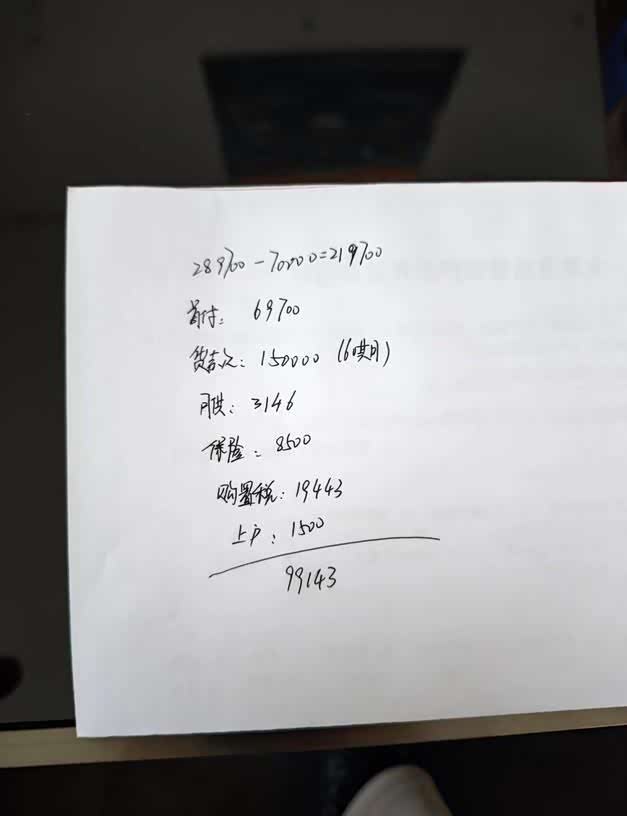 289700-70000=219700
首付: 69700
贷款: 150000 (60月)
月供: 3146
保险: 8500
购置税: 19443
上户: 1500
99143